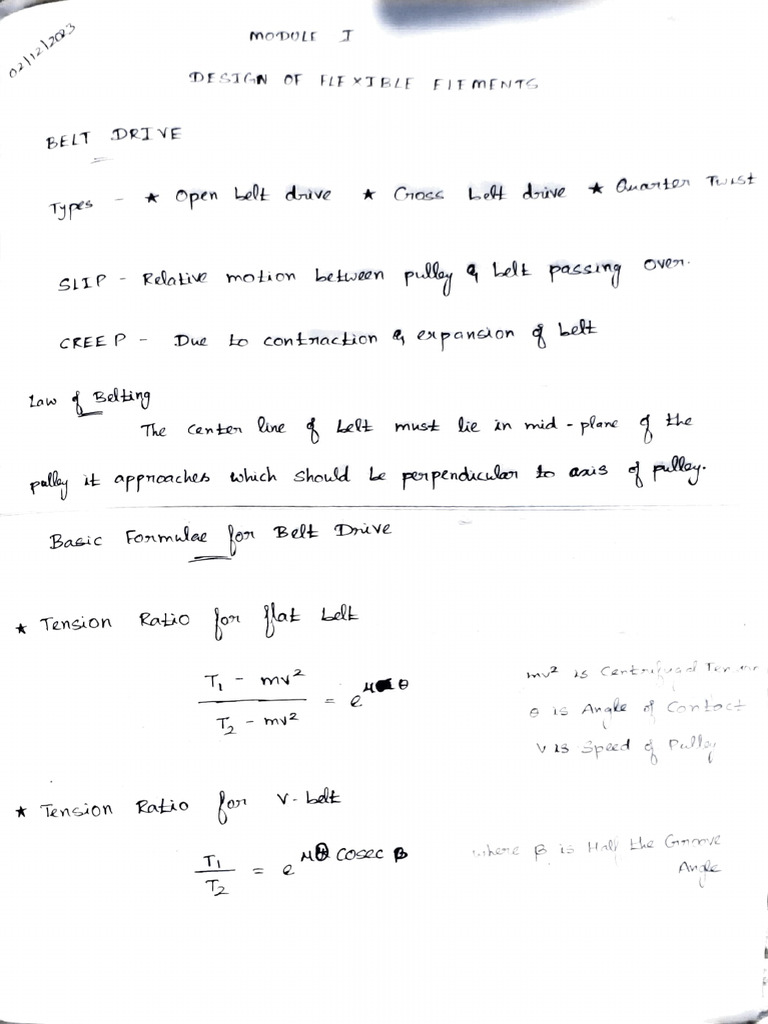 02/12/2023
MODULE I
DESIGN OF FLEXIBLE ELEMENTS
BELT DRIVE
Types - ★ Open belt drive ★ Cross belt drive ★ Quarter Twist
SLIP - Relative motion between pulley & belt passing over.
CREEP - Due to contraction & expansion of belt
Law of Belting
The center line of belt must lie in mid-plane of the
pulley it approaches which should be perpendicular to axis of pulley.
Basic Formulae for Belt Drive
★ Tension Ratio for flat belt
(T₁ - mv²) / (T₂ - mv²) = e^(μθ)
mv² is Centrifugal
θ is Angle of Contact
V is Speed of Pulley
★ Tension Ratio for V-belt
T₁ / T₂ = e^(μθ cosec β)
where β is Half the Groove
Angle